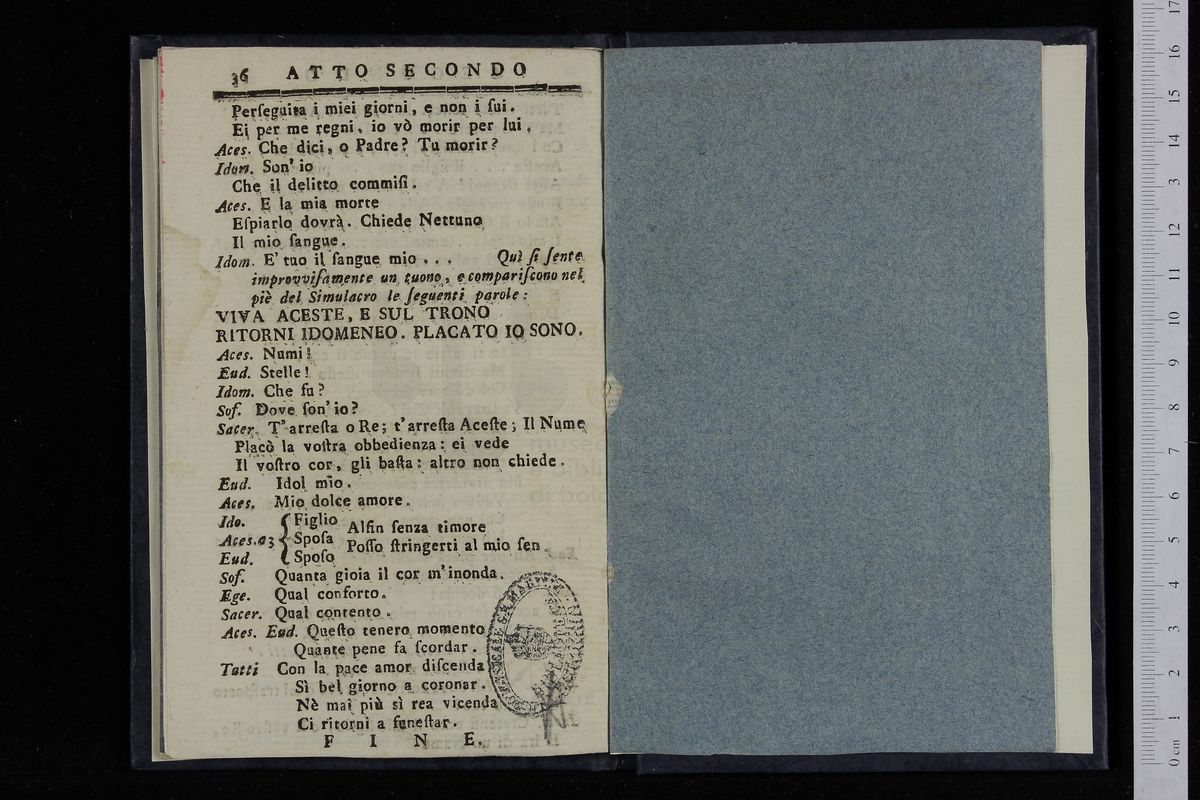 36 ATTO SECONDO
Perſeguita i miei giorni, e non i ſui.
Ei per me regni, io vò morir per lui.
Aces. Che dici, o Padre? Tu morir?
Idom. Son' io
Che il delitto commiſi.
Aces. E la mia morte
Eſpiarlo dovrà. Chiede Nettuno
Il mio ſangue.
Idom. E' tuo il ſangue mio . . . Quì ſi ſente
improvviſamente un tuono, e compariſcono nel
piè del Simulacro le ſeguenti parole:
VIVA ACESTE, E SUL TRONO
RITORNI IDOMENEO. PLACATO IO SONO.
Aces. Numi!
Eud. Stelle!
Idom. Che fu?
Sof. Dove ſon' io?
Sacer. T' arreſta o Re; t'arreſta Aceſte; Il Nume
Placò la voſtra obbedienza: ei vede
Il voſtro cor, gli baſta: altro non chiede.
Eud. Idol mio.
Aces. Mio dolce amore.
Ido. Figlio
Aces. a3 Spoſa
Eud. Spoſo
Alfin ſenza timore
Poſſo ſtringerti al mio ſen.
Sof. Quanta gioia il cor m'inonda.
Ege. Qual conforto.
Sacer. Qual contento.
Aces. Eud. Queſto tenero momento
Quante pene fa ſcordar.
Tutti Con la pace amor diſcenda
Sì bel giorno a coronar.
Nè mai più sì rea vicenda
Ci ritorni a funeſtar.
F I N E.
0 cm 1 2 3 4 5 6 7 8 9 10 11 12 13 14 15 16 17